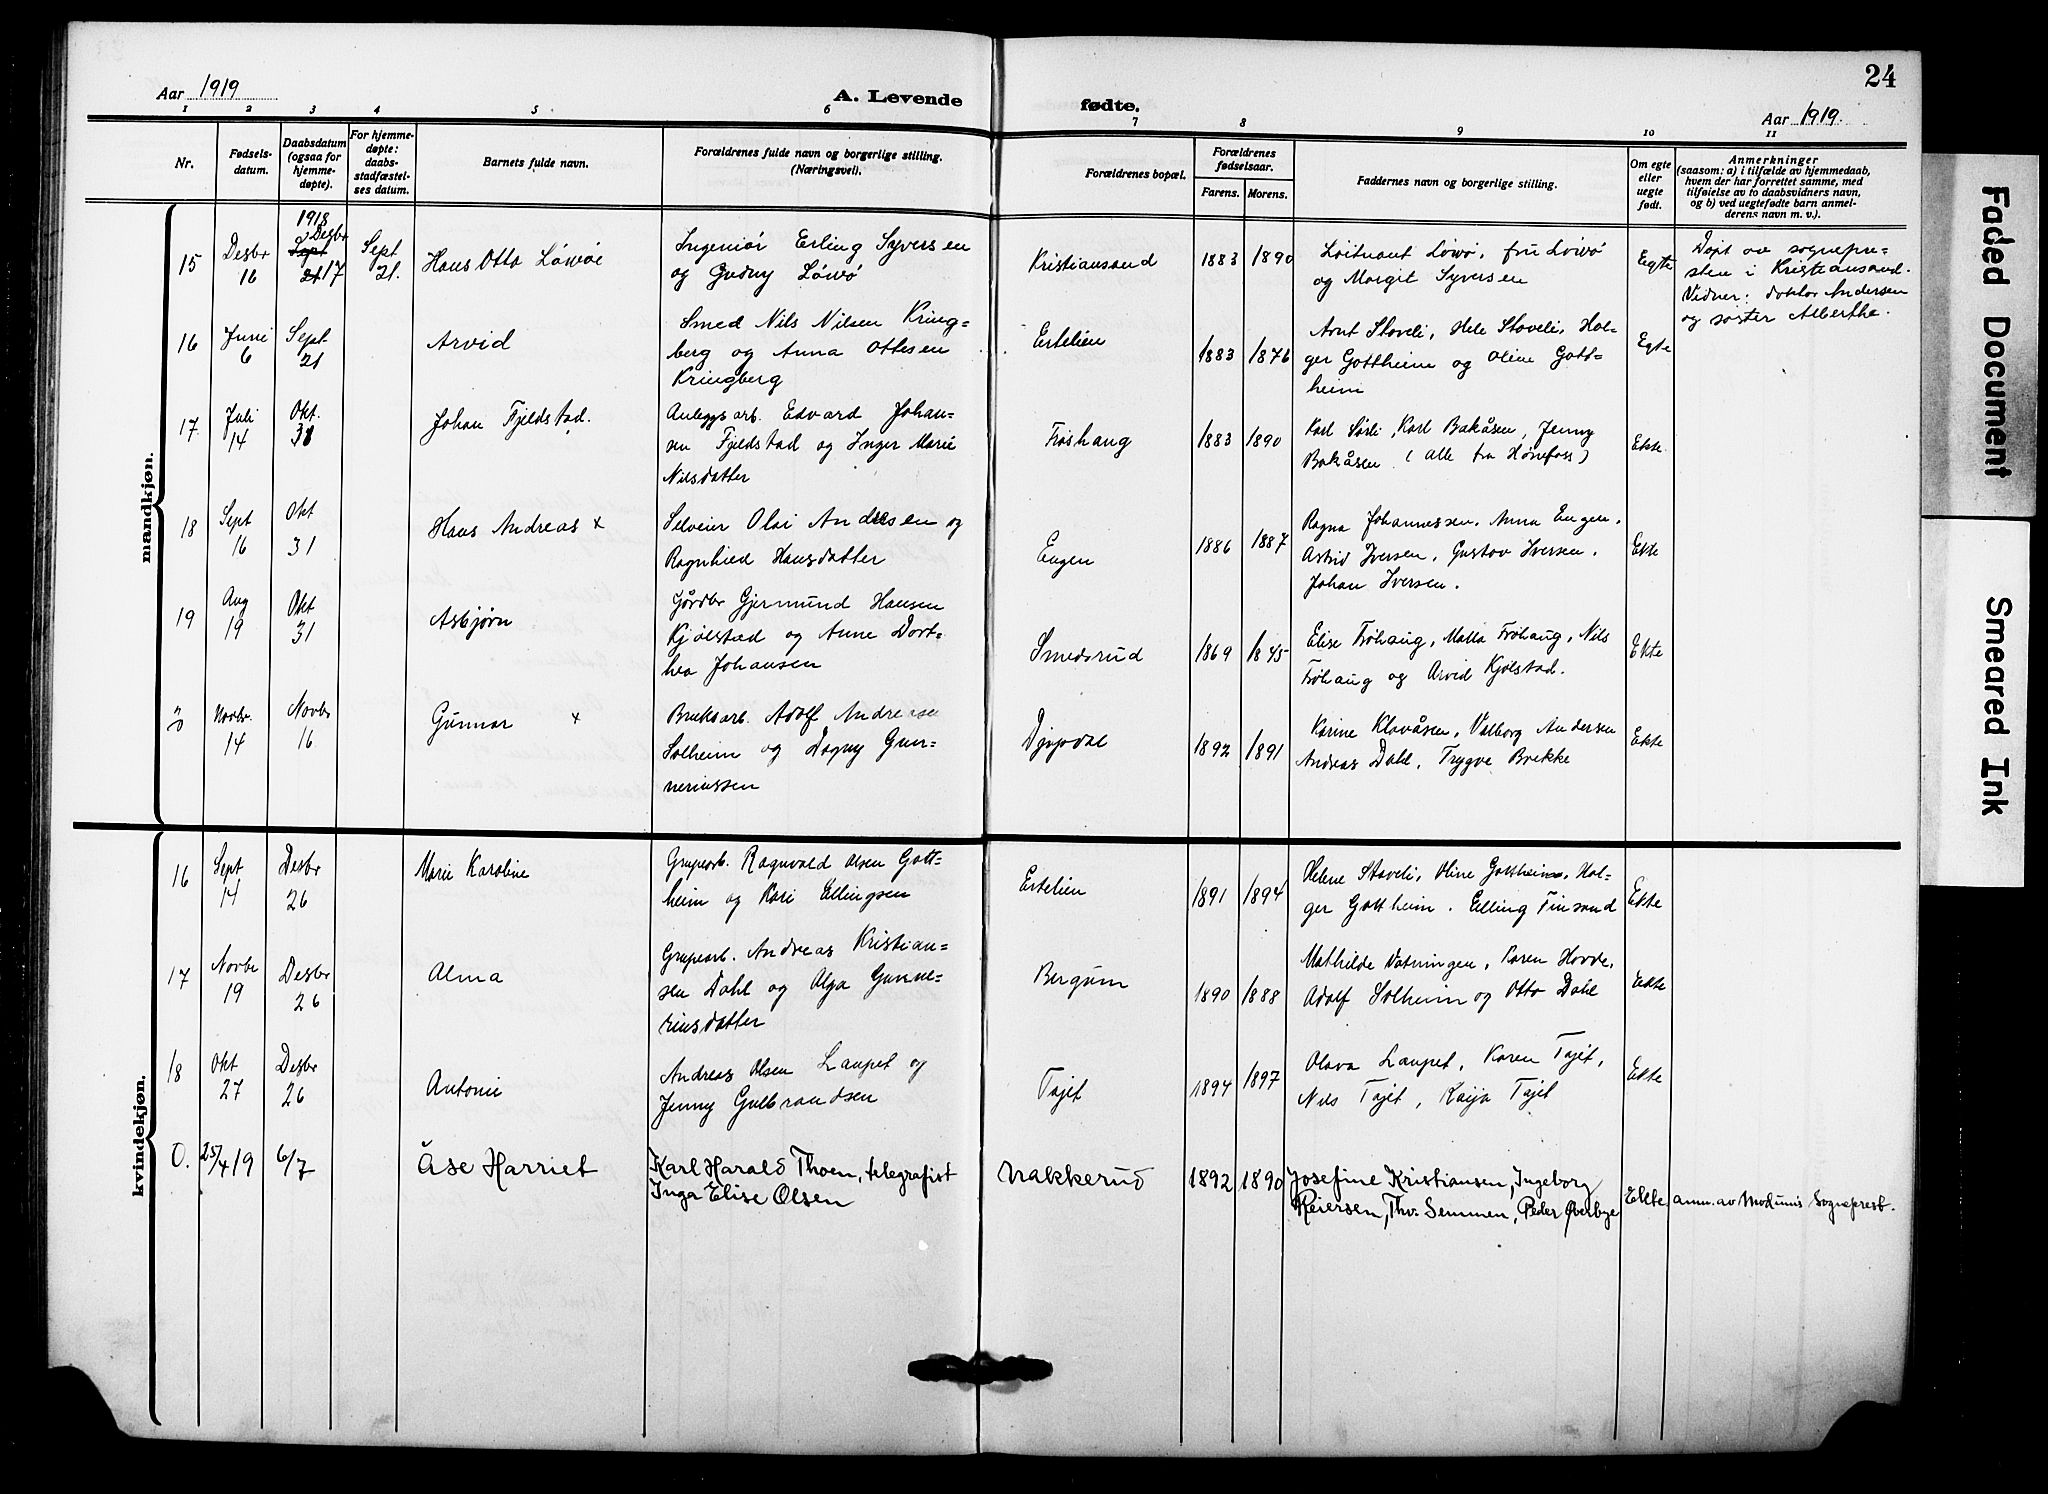 24
Aar 1919
A. Levende
fødte.
Aar 1919.
1 2 3 4 5 6 7 8 9 10 11
Nr.
Fødsels-
datum.
Daabsdatum
(ogsaa for
hjemme-
døpte).
For hjemme-
døpte:
daabs-
stadfæstel-
ses datum.
Barnets fulde navn.
Forældrenes fulde navn og borgerlige stilling.
(Næringsvei).
Forældrenes bopæl.
Forældrenes
fødselsaar.
Farens. Morens.
Faddernes navn og borgerlige stilling.
Om egte
eller
uegte
født.
Anmerkninger
(saasom: a) i tilfælde av hjemmedaab,
hvem der har forrettet samme, med
tilføielse av to daabsvidners navn,
og b) ved uegtefødte barn anmel-
derens navn m. v.).
mandkjøn.
15
Desbr
16
1918
Desbr
Sept
21 17
Sept
21.
Hans Otto Löwö
Ingeniör Erling Syversen
og Gudny Löwö
Kristiansand
1883 1890
Löitnant Löwö, fru Löwö
og Margit Syversen
Egte
Döpt av sognepre-
sten i Kristiansand.
Vidner: doktor Andersen
og söster Alberthe.
16
Juni
6
Sept
21
Arvid
Smed Nils Nilsen Kring-
berg og Anna Ottesen
Kringberg
Estelien
1883 1876
Arnt Stoveli, Hele Stoveli, Hol-
ger Gottheim og Oline Gott-
heim
Egte
17.
Juli
14
Okt.
31
Johan Fjeldstad.
Anleggsarb. Edvard Johan-
sen Fjeldstad og Inger Marie
Nilsdatter
Fröshaug
1883 1890
Karl Sörli, Karl Bakåsen, Jenny
Bakåsen (alle fra Hönefoss)
Ekte.
18
Sept
16
Okt
31
Hans Andreas x
Selveier Olai Andresen og
Ragnhild Hansdatter
Engen
1886 1887
Ragna Johannessen, Anna Engen,
Astrid Iversen, Gustav Iversen,
Johan Iversen.
Ekte
19
Aug
19
Okt
31
Asbjørn
Gårdbr Gjermund Hansen
Kjölstad og Anne Dort-
hea Johansen
Smedsrud
1869
Elise Fröhaug, Matta Fröhaug, Nils
Fröhaug og Arvid Kjölstad.
Ekte
Novbr.
14
Novbr
16
Gunnar x
Bruksarb. Adolf Andreasen
Solheim og Dagny Gun-
neriussen
Djupdal
1892 1891
Karine Klovåsen, Valborg Andersen
Andreas Dahl, Trygve Brekke
Ekte
kvindekjøn.
16
Sept
14
Desbr
26
Marie Karoline
Grupearb. Ragnvald Olsen Gott-
heim og Kari Ellingsen
Estelien
1891 1894
Helene Stoveli, Oline Gottheim, Hol-
ger Gottheim. Elling Finsand
Ekte
17
Novbr
19
Desbr
26
Alma
Grupearb. Andreas Kristian-
sen Dahl og Olga Gunne-
riusdatter
Bergum
1890 1888
Mathilde Vatningen, Karen Hovde,
Adolf Solheim og Otto Dahl
Ekte
18
Okt
27
Desbr
26
Antonie
Andreas Olsen Laupet og
Jenny Gulbrandsen
Tajet
1894 1897
Olava Laupet, Karen Tajet,
Nils Tajet, Kaija Tajet
Ekte
0.
25/4 19
6/7
Åse Harriet
Karl Harald Thoen, telegrafist
Inga Elise Olsen
Nakkerud
1892 1890
Josefine Kristiansen, Ingeborg
Reiersen, Thv. Semmen, Peder Øverbye
Ekte
anm. av Modums Sogneprest.
Faded Document
Smeared Ink